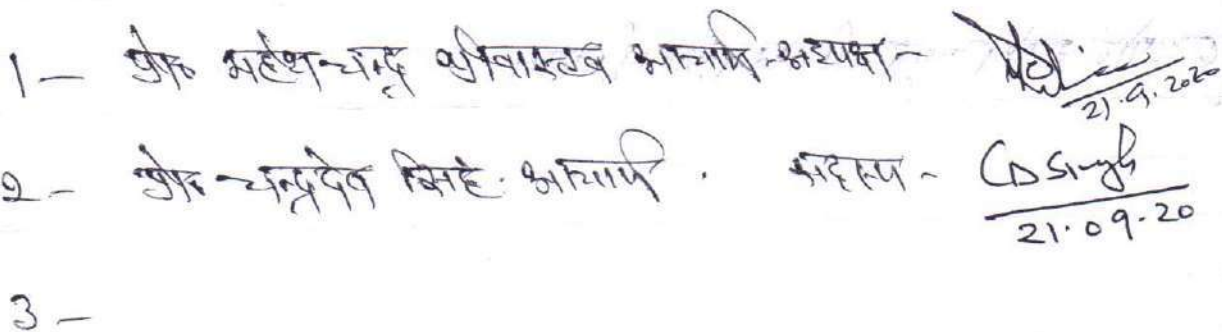 1 - प्रो० महेशचन्द्र श्रीवास्तव आचार्य - अध्यक्ष -
21.9.2020
2 - प्रो० चन्द्रदेव सिंह. आचार्य . सदस्य - CD Singh
21.09.20
3 -